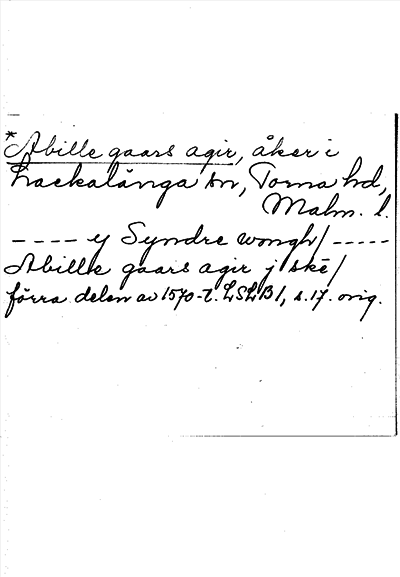 *Abille gaars agir, åker i
Lackalänga sn, Torna hd,
Malm. l.
---- y Syndre wongh/-----
Abille gaars agir j ske/
förra delen av 1570-t. LSLB1, s.17. orig.